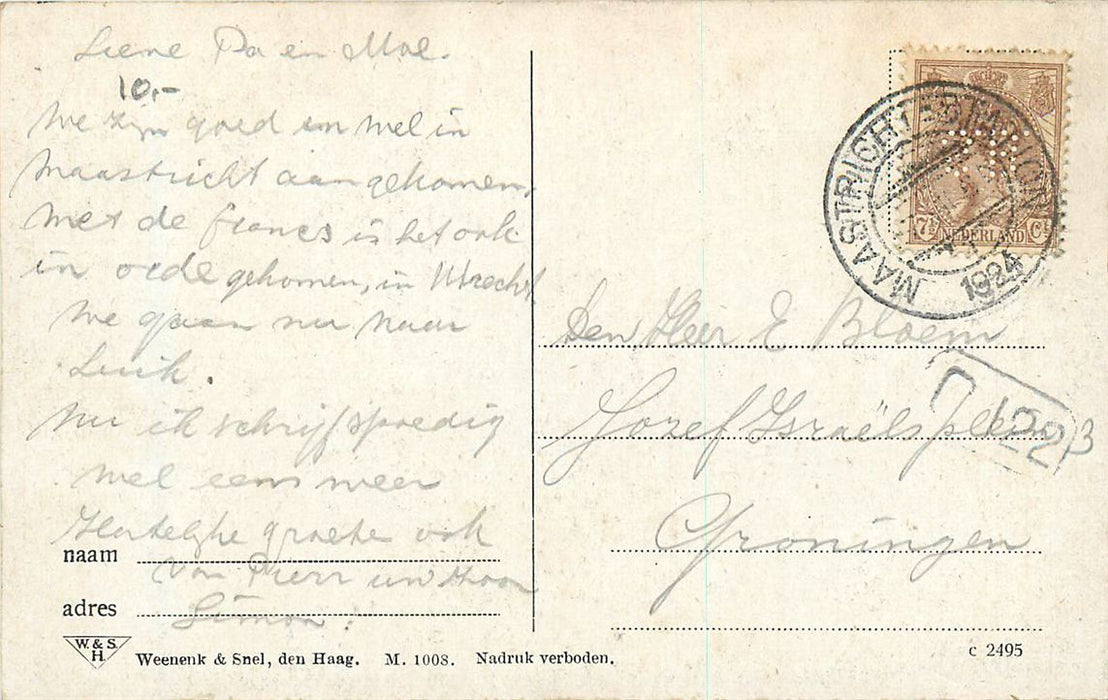 Lieve Pa en Moe.
10.-
We zijn goed en wel in
Maastricht aangekomen,
met de francs is het ook
in orde gekomen, in Utrecht
We gaan nu naar
Luik.
Nu ik schrijf spoedig
wel eens weer
Hartelijke groete ook
van Pierr uw zoon
Simon.
naam
adres
W. & S.
H.
Weenenk & Snel, den Haag. M. 1008. Nadruk verboden.
MAASTRICHT-STATION
1924
7½ NEDERLAND Ct
Den Heer E Bloem
Jozef Israëlsplein 3
122
Groningen
c 2495